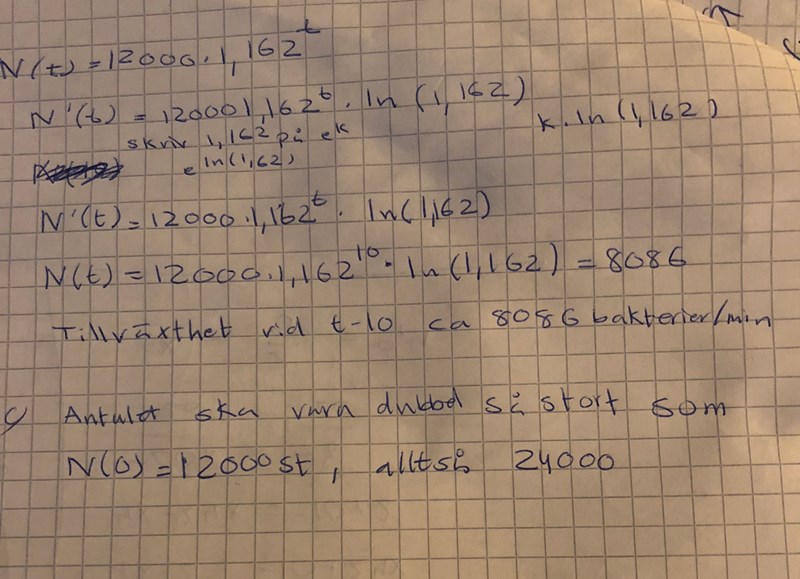 N(t) = 12000 · 1,162^t
N'(t) = 12000 1,162^t · ln (1,162)
k · ln (1,162)
skriv 1,162 på e^k
e^ln(1,62)
N'(t) = 12000 · 1,162^t · ln(1,162)
N(t) = 12000 · 1,162^10 · ln (1,162) = 8086
Tillväxthet vid t-10 ca 8086 bakterier/min
c) Antalet ska vara dubbel så stort som
N(0) = 12000 st, alltså 24000